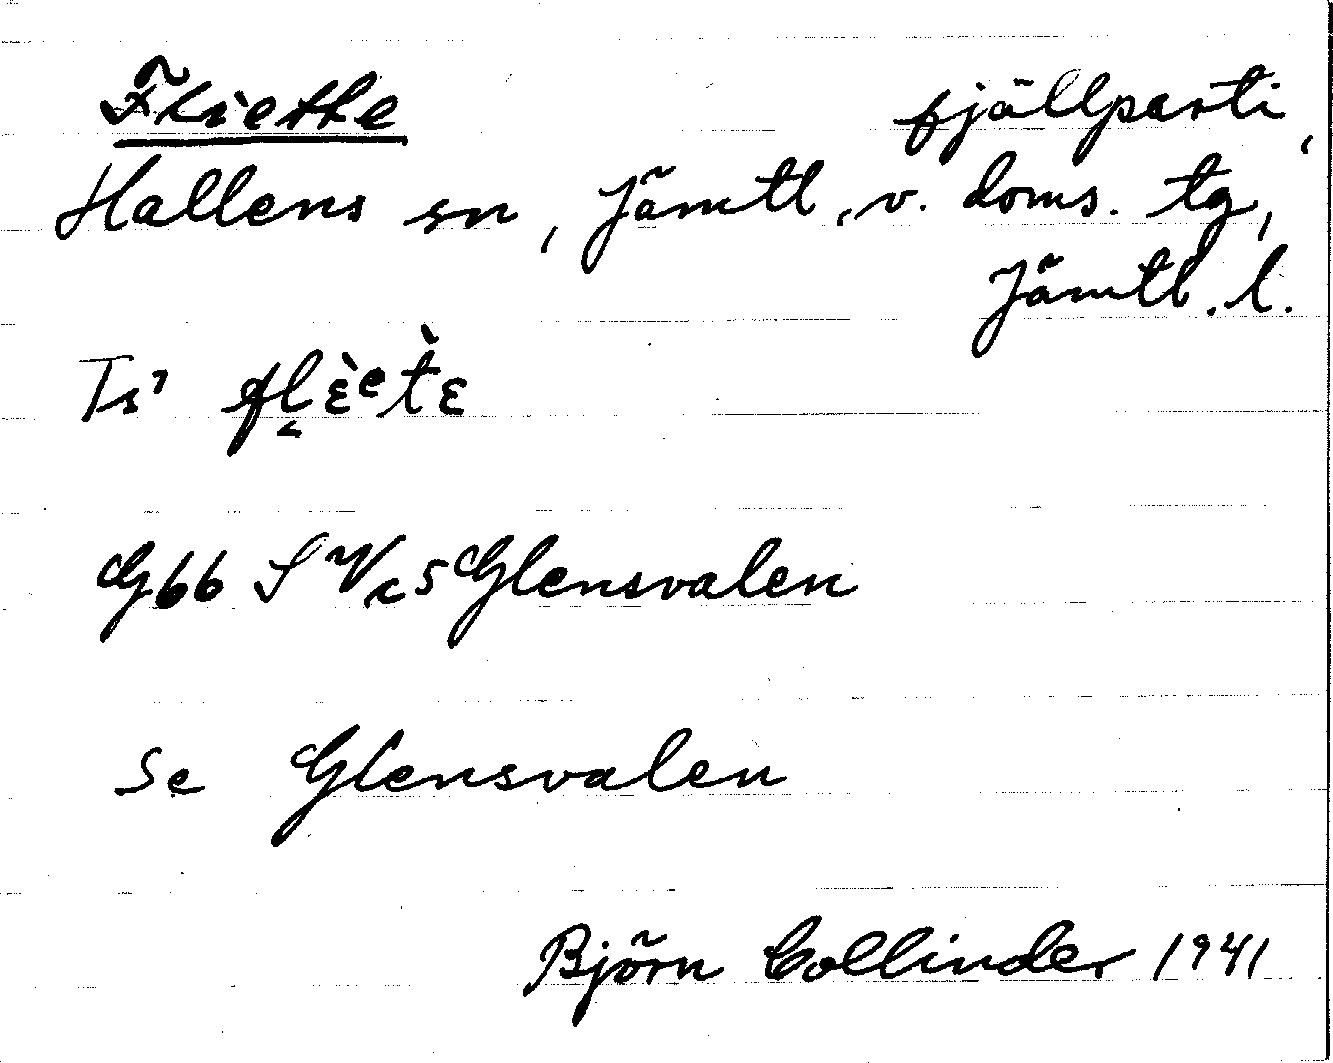 Fliehte fjällparti,
Hallens sn, Jämtl. v. doms. tg,
Jämtl. l.
Ts' fl̬ὲᵉt̀ε
G66 S
Glensvalen
Se Glensvalen
Björn Collinder 1941